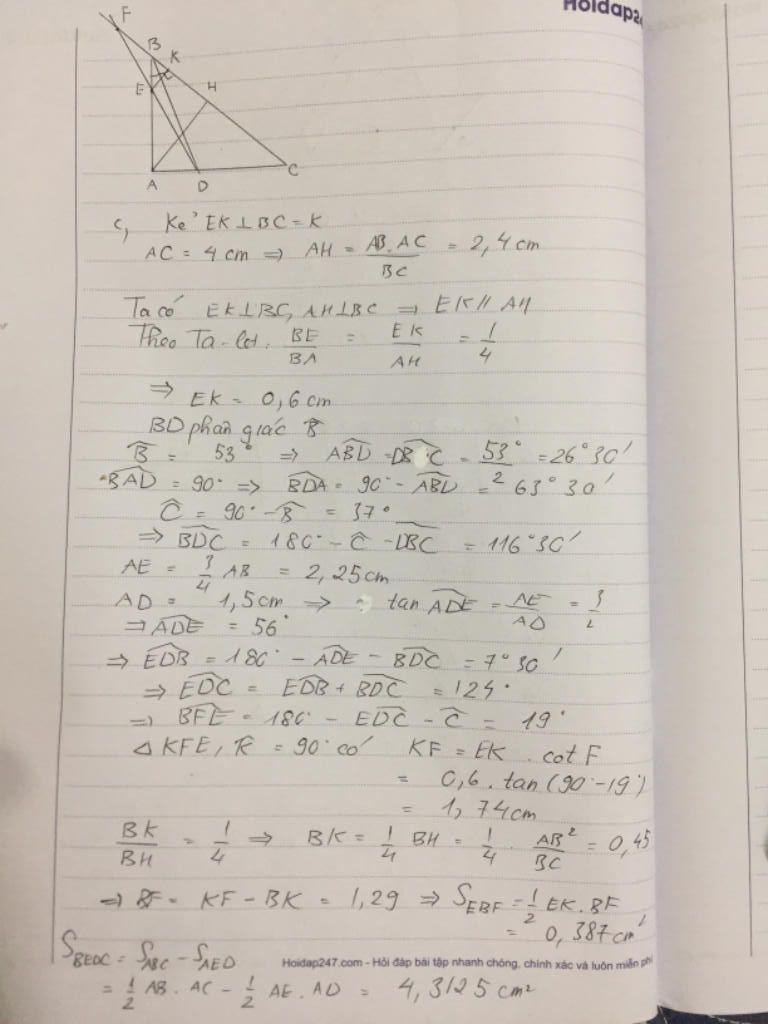 Hoidap24
F
B
K
E
H
A
D
C
c, Kẻ EK ⊥ BC = K
AC = 4 cm => AH = AB.AC / BC = 2,4 cm
Ta có EK⊥BC, AH⊥BC => EK // AH
Theo Ta-let. BE/BA = EK/AH = 1/4
=> EK = 0,6 cm
BD phân giác B̂
B̂ = 53° => ABD = DBC = 53°/2 = 26°30'
BAD = 90° => BDA = 90° - ABD = 63°30'
Ĉ = 90° - B̂ = 37°
=> BDC = 180° - Ĉ - DBC = 116°30'
AE = 3/4 AB = 2,25cm
AD = 1,5cm => tan ADE = AE/AD = 3/2
=> ADE = 56°
=> EDB = 180° - ADE - BDC = 7°30'
=> EDC = EDB + BDC = 124°
=> BFE = 180° - EDC - Ĉ = 19°
Δ KFE, K̂ = 90° có KF = EK . cot F
= 0,6 . tan (90° - 19°)
= 1,74cm
BK/BH = 1/4 => BK = 1/4 BH = 1/4 . AB²/BC = 0,45
=> BF = KF - BK = 1,29 => S_EBF = 1/2 EK.BF
= 0,387 cm²
S_BEDC = S_ABC - S_AED
Hoidap247.com - Hỏi đáp bài tập nhanh chóng, chính xác và luôn miễn phí
= 1/2 AB.AC - 1/2 AE.AD = 4,3125 cm²